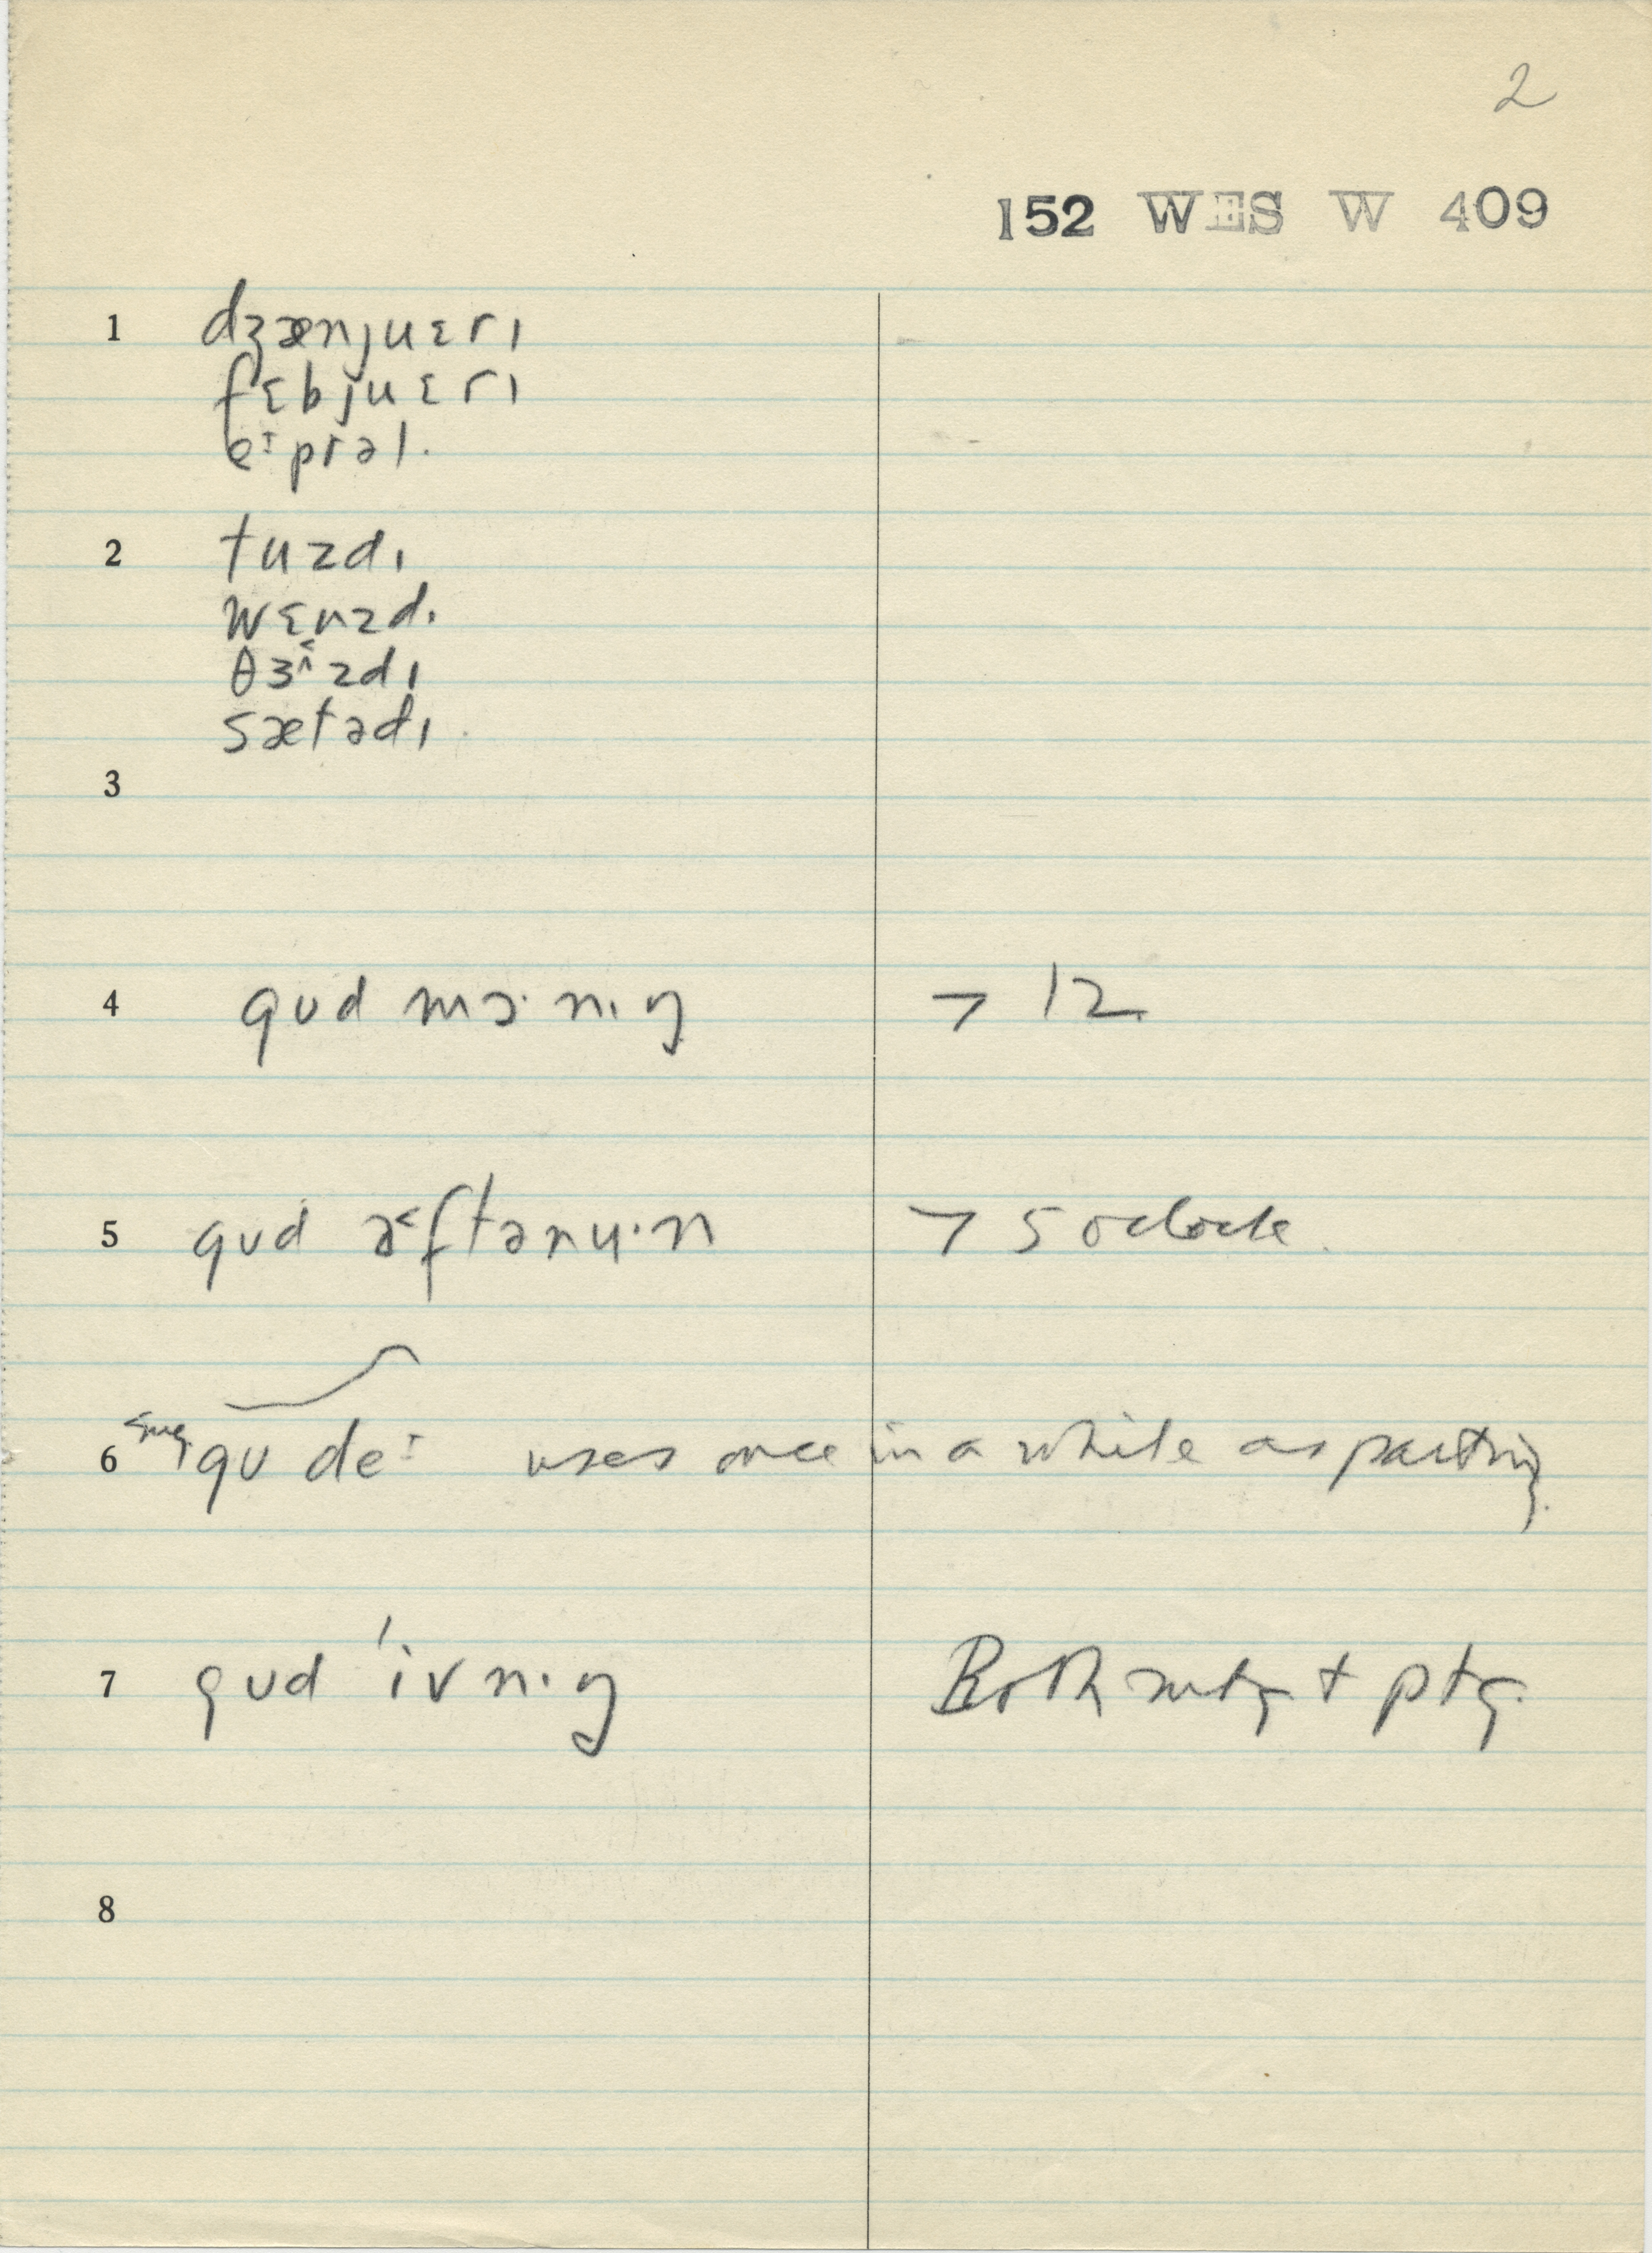 2
152 WES W 409
1 dʒænjuɛrɪ
fɛbjuɛrɪ
eᶦprəl.
2 tuzdɪ
wɛnzdɪ
θɜ˂^zdɪ
sætədɪ
3
4 gʊd mɔ·nɪŋ > 12
5 gʊd æ˂ftənu·n > 5 oclock.
6 gʊ deᶦ uses once in a while as parting.
7 gʊd 'ivnɪŋ Both mtg + ptg.
8